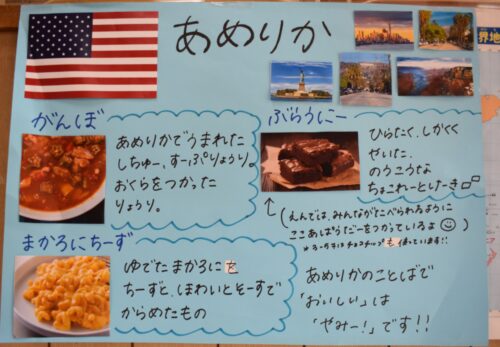 あめりか
がんぼ
あめりかでうまれた
しちゅー、すーぷりょうり。
おくらをつかった
りょうり。
ぶらうにー
ひらたく、しかくく
やいた、
のうこうな
ちょこれーとけーき
(えんでは、みんながたべられるように
ここあぱうだーをつかっているよ
まかろにちーず
ゆでたまかろにを
ちーずと、ほわいとそーすで
からめたもの
あめりかのことばで
「おいしい」は
「やみー!」です!!
界地